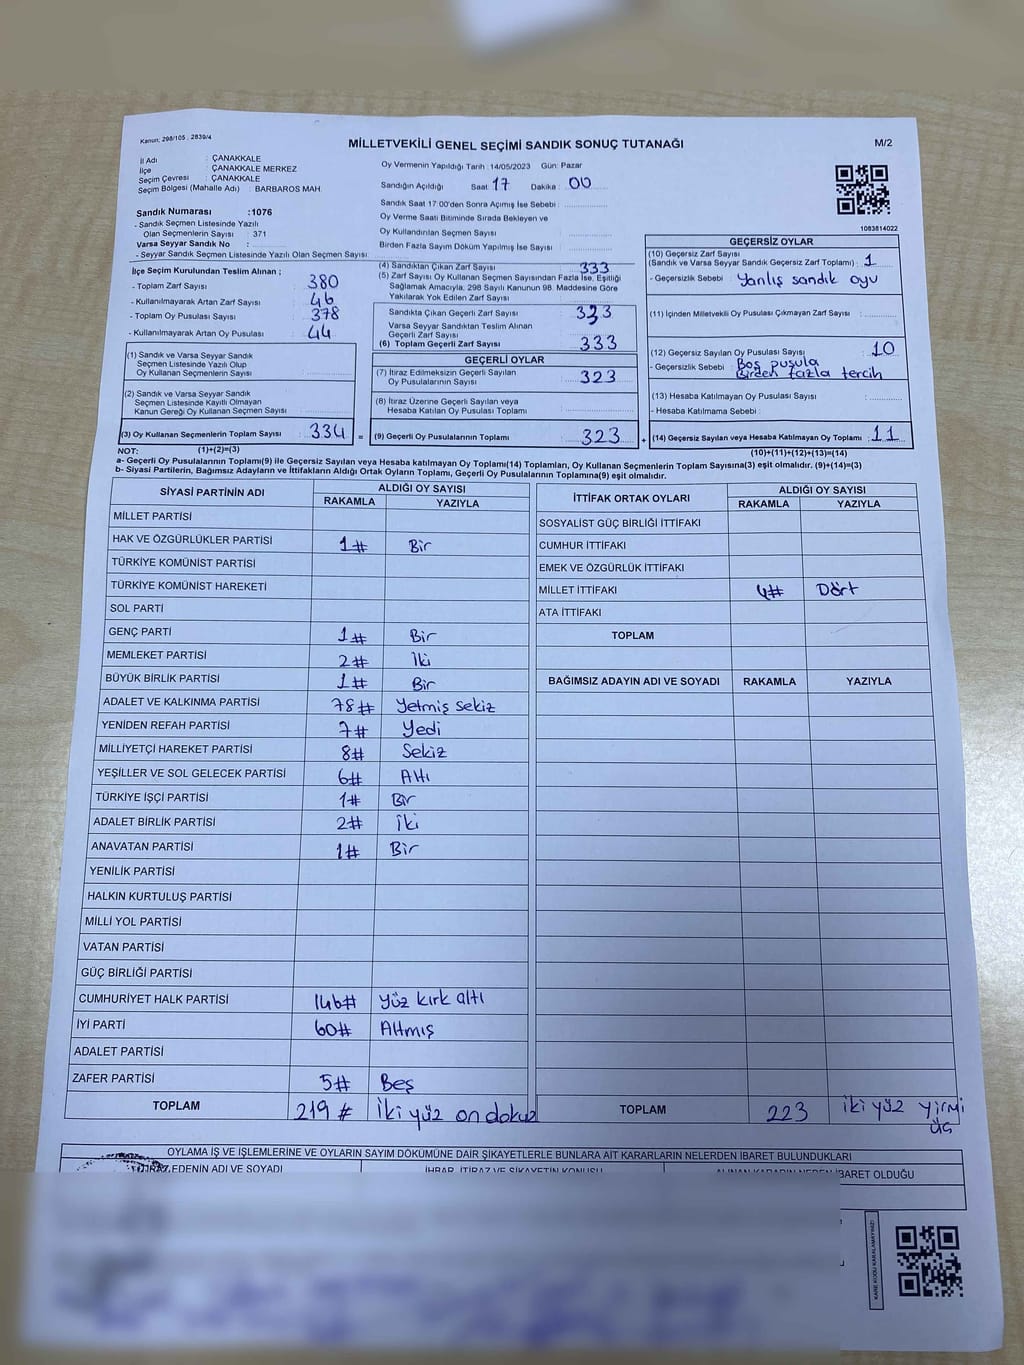 Kanun: 298/105 , 2839/4
MİLLETVEKİLİ GENEL SEÇİMİ SANDIK SONUÇ TUTANAĞI
M/2
İl Adı : ÇANAKKALE
İlçe : ÇANAKKALE MERKEZ
Seçim Çevresi : ÇANAKKALE
Seçim Bölgesi (Mahalle Adı) : BARBAROS MAH.
Sandık Numarası :1076
- Sandık Seçmen Listesinde Yazılı
Olan Seçmenlerin Sayısı : 371
Varsa Seyyar Sandık No :
- Seyyar Sandık Seçmen Listesinde Yazılı Olan Seçmen Sayısı
İlçe Seçim Kurulundan Teslim Alınan ;
- Toplam Zarf Sayısı 380
- Kullanılmayarak Artan Zarf Sayısı 46
- Toplam Oy Pusulası Sayısı 378
- Kullanılmayarak Artan Oy Pusulası 44
(1) Sandık ve Varsa Seyyar Sandık
Seçmen Listesinde Yazılı Olup
Oy Kullanan Seçmenlerin Sayısı
(2) Sandık ve Varsa Seyyar Sandık
Seçmen Listesinde Kayıtlı Olmayan
Kanun Gereği Oy Kullanan Seçmen Sayısı
(3) Oy Kullanan Seçmenlerin Toplam Sayısı 334 =
Oy Vermenin Yapıldığı Tarih : 14/05/2023 Gün: Pazar
Sandığın Açıldığı Saat: 17 Dakika : 00
Sandık Saat 17:00'den Sonra Açımış İse Sebebi :
Oy Verme Saati Bitiminde Sırada Bekleyen ve
Oy Kullandırılan Seçmen Sayısı
Birden Fazla Sayım Döküm Yapılmış İse Sayısı
(4) Sandıktan Çıkan Zarf Sayısı 333
(5) Zarf Sayısı Oy Kullanan Seçmen Sayısından Fazla İse, Eşitliği
Sağlamak Amacıyla, 298 Sayılı Kanunun 98. Maddesine Göre
Yakılarak Yok Edilen Zarf Sayısı
Sandıkta Çıkan Geçerli Zarf Sayısı 333
Varsa Seyyar Sandıktan Teslim Alınan
Geçerli Zarf Sayısı
(6) Toplam Geçerli Zarf Sayısı 333
GEÇERLİ OYLAR
(7) İtiraz Edilmeksizin Geçerli Sayılan
Oy Pusulalarının Sayısı 323
(8) İtiraz Üzerine Geçerli Sayılan veya
Hesaba Katılan Oy Pusulası Toplamı
(9) Geçerli Oy Pusulalarının Toplamı 323 +
1083814022
GEÇERSİZ OYLAR
(10) Geçersiz Zarf Sayısı
(Sandık ve Varsa Seyyar Sandık Geçersiz Zarf Toplamı) : 1
- Geçersizlik Sebebi : Yanlış sandık oyu
(11) İçinden Milletvekili Oy Pusulası Çıkmayan Zarf Sayısı :
(12) Geçersiz Sayılan Oy Pusulası Sayısı : 10
- Geçersizlik Sebebi : Boş pusula
Birden fazla tercih
(13) Hesaba Katılmayan Oy Pusulası Sayısı :
- Hesaba Katılmama Sebebi :
(14) Geçersiz Sayılan veya Hesaba Katılmayan Oy Toplamı : 11
NOT: (1)+(2)=(3)
(10)+(11)+(12)+(13)=(14)
a- Geçerli Oy Pusulalarının Toplamı(9) ile Geçersiz Sayılan veya Hesaba katılmayan Oy Toplamı(14) Toplamları, Oy Kullanan Seçmenlerin Toplam Sayısına(3) eşit olmalıdır. (9)+(14)=(3)
b- Siyasi Partilerin, Bağımsız Adayların ve İttifakların Aldığı Ortak Oyların Toplamı, Geçerli Oy Pusulalarının Toplamına(9) eşit olmalıdır.
SİYASİ PARTİNİN ADI ALDIĞI OY SAYISI
RAKAMLA YAZIYLA
MİLLET PARTİSİ
HAK VE ÖZGÜRLÜKLER PARTİSİ 1# Bir
TÜRKİYE KOMÜNİST PARTİSİ
TÜRKİYE KOMÜNİST HAREKETİ
SOL PARTİ
GENÇ PARTİ 1# Bir
MEMLEKET PARTİSİ 2# İki
BÜYÜK BİRLİK PARTİSİ 1# Bir
ADALET VE KALKINMA PARTİSİ 78# Yetmiş sekiz
YENİDEN REFAH PARTİSİ 7# Yedi
MİLLİYETÇİ HAREKET PARTİSİ 8# Sekiz
YEŞİLLER VE SOL GELECEK PARTİSİ 6# Altı
TÜRKİYE İŞÇİ PARTİSİ 1# Bir
ADALET BİRLİK PARTİSİ 2# İki
ANAVATAN PARTİSİ 1# Bir
YENİLİK PARTİSİ
HALKIN KURTULUŞ PARTİSİ
MİLLİ YOL PARTİSİ
VATAN PARTİSİ
GÜÇ BİRLİĞİ PARTİSİ
CUMHURİYET HALK PARTİSİ 146# yüz kırk altı
İYİ PARTİ 60# Altmış
ADALET PARTİSİ
ZAFER PARTİSİ 5# Beş
TOPLAM 219 # İki yüz on dokuz
İTTİFAK ORTAK OYLARI ALDIĞI OY SAYISI
RAKAMLA YAZIYLA
SOSYALİST GÜÇ BİRLİĞİ İTTİFAKI
CUMHUR İTTİFAKI
EMEK VE ÖZGÜRLÜK İTTİFAKI
MİLLET İTTİFAKI 4# Dört
ATA İTTİFAKI
TOPLAM
BAĞIMSIZ ADAYIN ADI VE SOYADI RAKAMLA YAZIYLA
TOPLAM 223 iki yüz yirmi
üç
OYLAMA İŞ VE İŞLEMLERİNE VE OYLARIN SAYIM DÖKÜMÜNE DAİR ŞİKAYETLERLE BUNLARA AİT KARARLARIN NELERDEN İBARET BULUNDUKLARI
EDENİN ADI VE SOYADI İHBAR, İTİRAZ VE ŞİKAYETİN KONUSU ALINAN KARARIN NEDEN İBARET OLDUĞU
KARE KODU KARALAMAYINIZ!